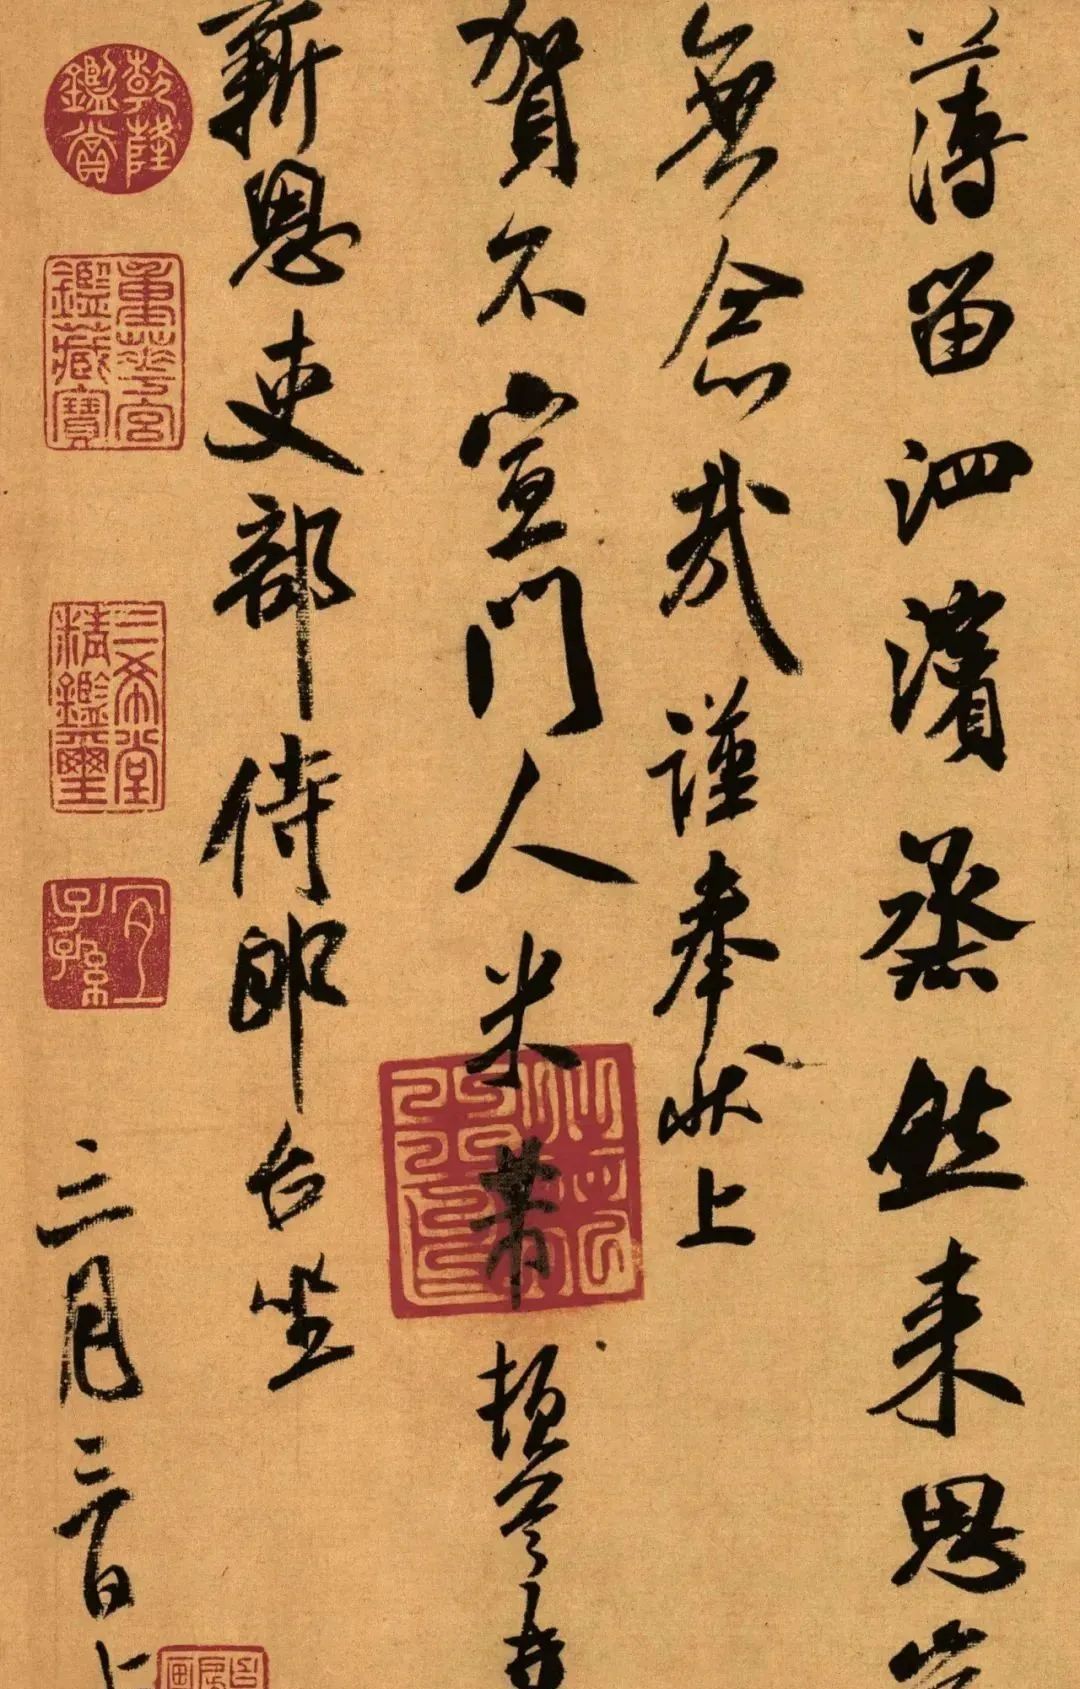 薄留泗濱烝然来思
無念哉謹奉狀上
賀不宣門人米芾頓首再
新恩吏部侍郎台坐
三月三日上
乾隆鑑賞
重華宮鑑藏寶
三希堂精鑑璽
宜子孫